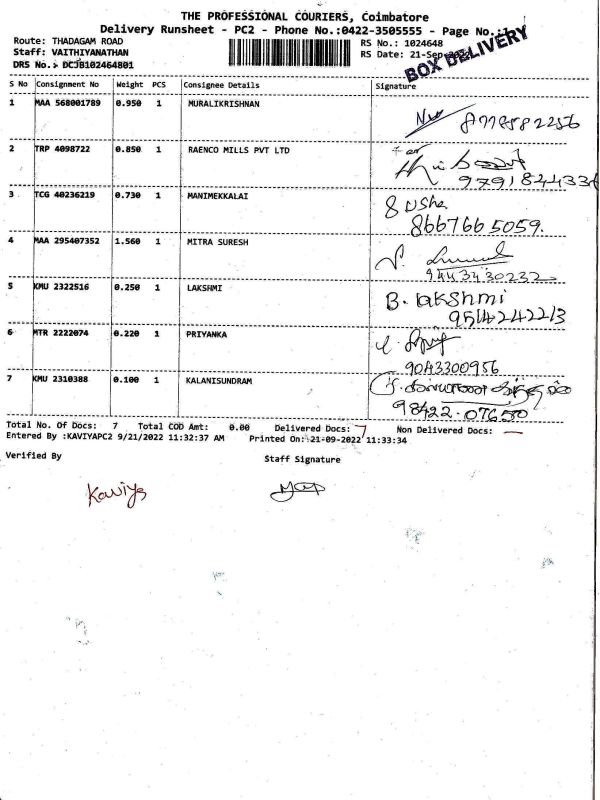 THE PROFESSIONAL COURIERS, Coimbatore
Delivery Runsheet - PC2 - Phone No.:0422-3505555 - Page No.:
BOX DELIVERY
Route: THADAGAM ROAD RS No.: 1024648
Staff: VAITHIYANATHAN RS Date: 21-Sep-2022
DRS No.: DCJB102464801
S No Consignment No Weight PCS Consignee Details Signature
1 MAA 568001789 0.950 1 MURALIKRISHNAN
2 TRP 4098722 0.850 1 RAENCO MILLS PVT LTD
for
3 TCG 40236219 0.730 1 MANIMEKKALAI Usha
8667665059.
4 MAA 295407352 1.560 1 MITRA SURESH
9443430232
5 KMU 2322516 0.250 1 LAKSHMI B. lakshmi
9514242213
6 MTR 2222074 0.220 1 PRIYANKA
9043300956
7 KMU 2310388 0.100 1 KALANISUNDRAM
Total No. Of Docs: 7 Total COD Amt: 0.00 Delivered Docs: 7 Non Delivered Docs: —
Entered By :KAVIYAPC2 9/21/2022 11:32:37 AM Printed On:21-09-2022 11:33:34
Verified By Staff Signature
Kaviya